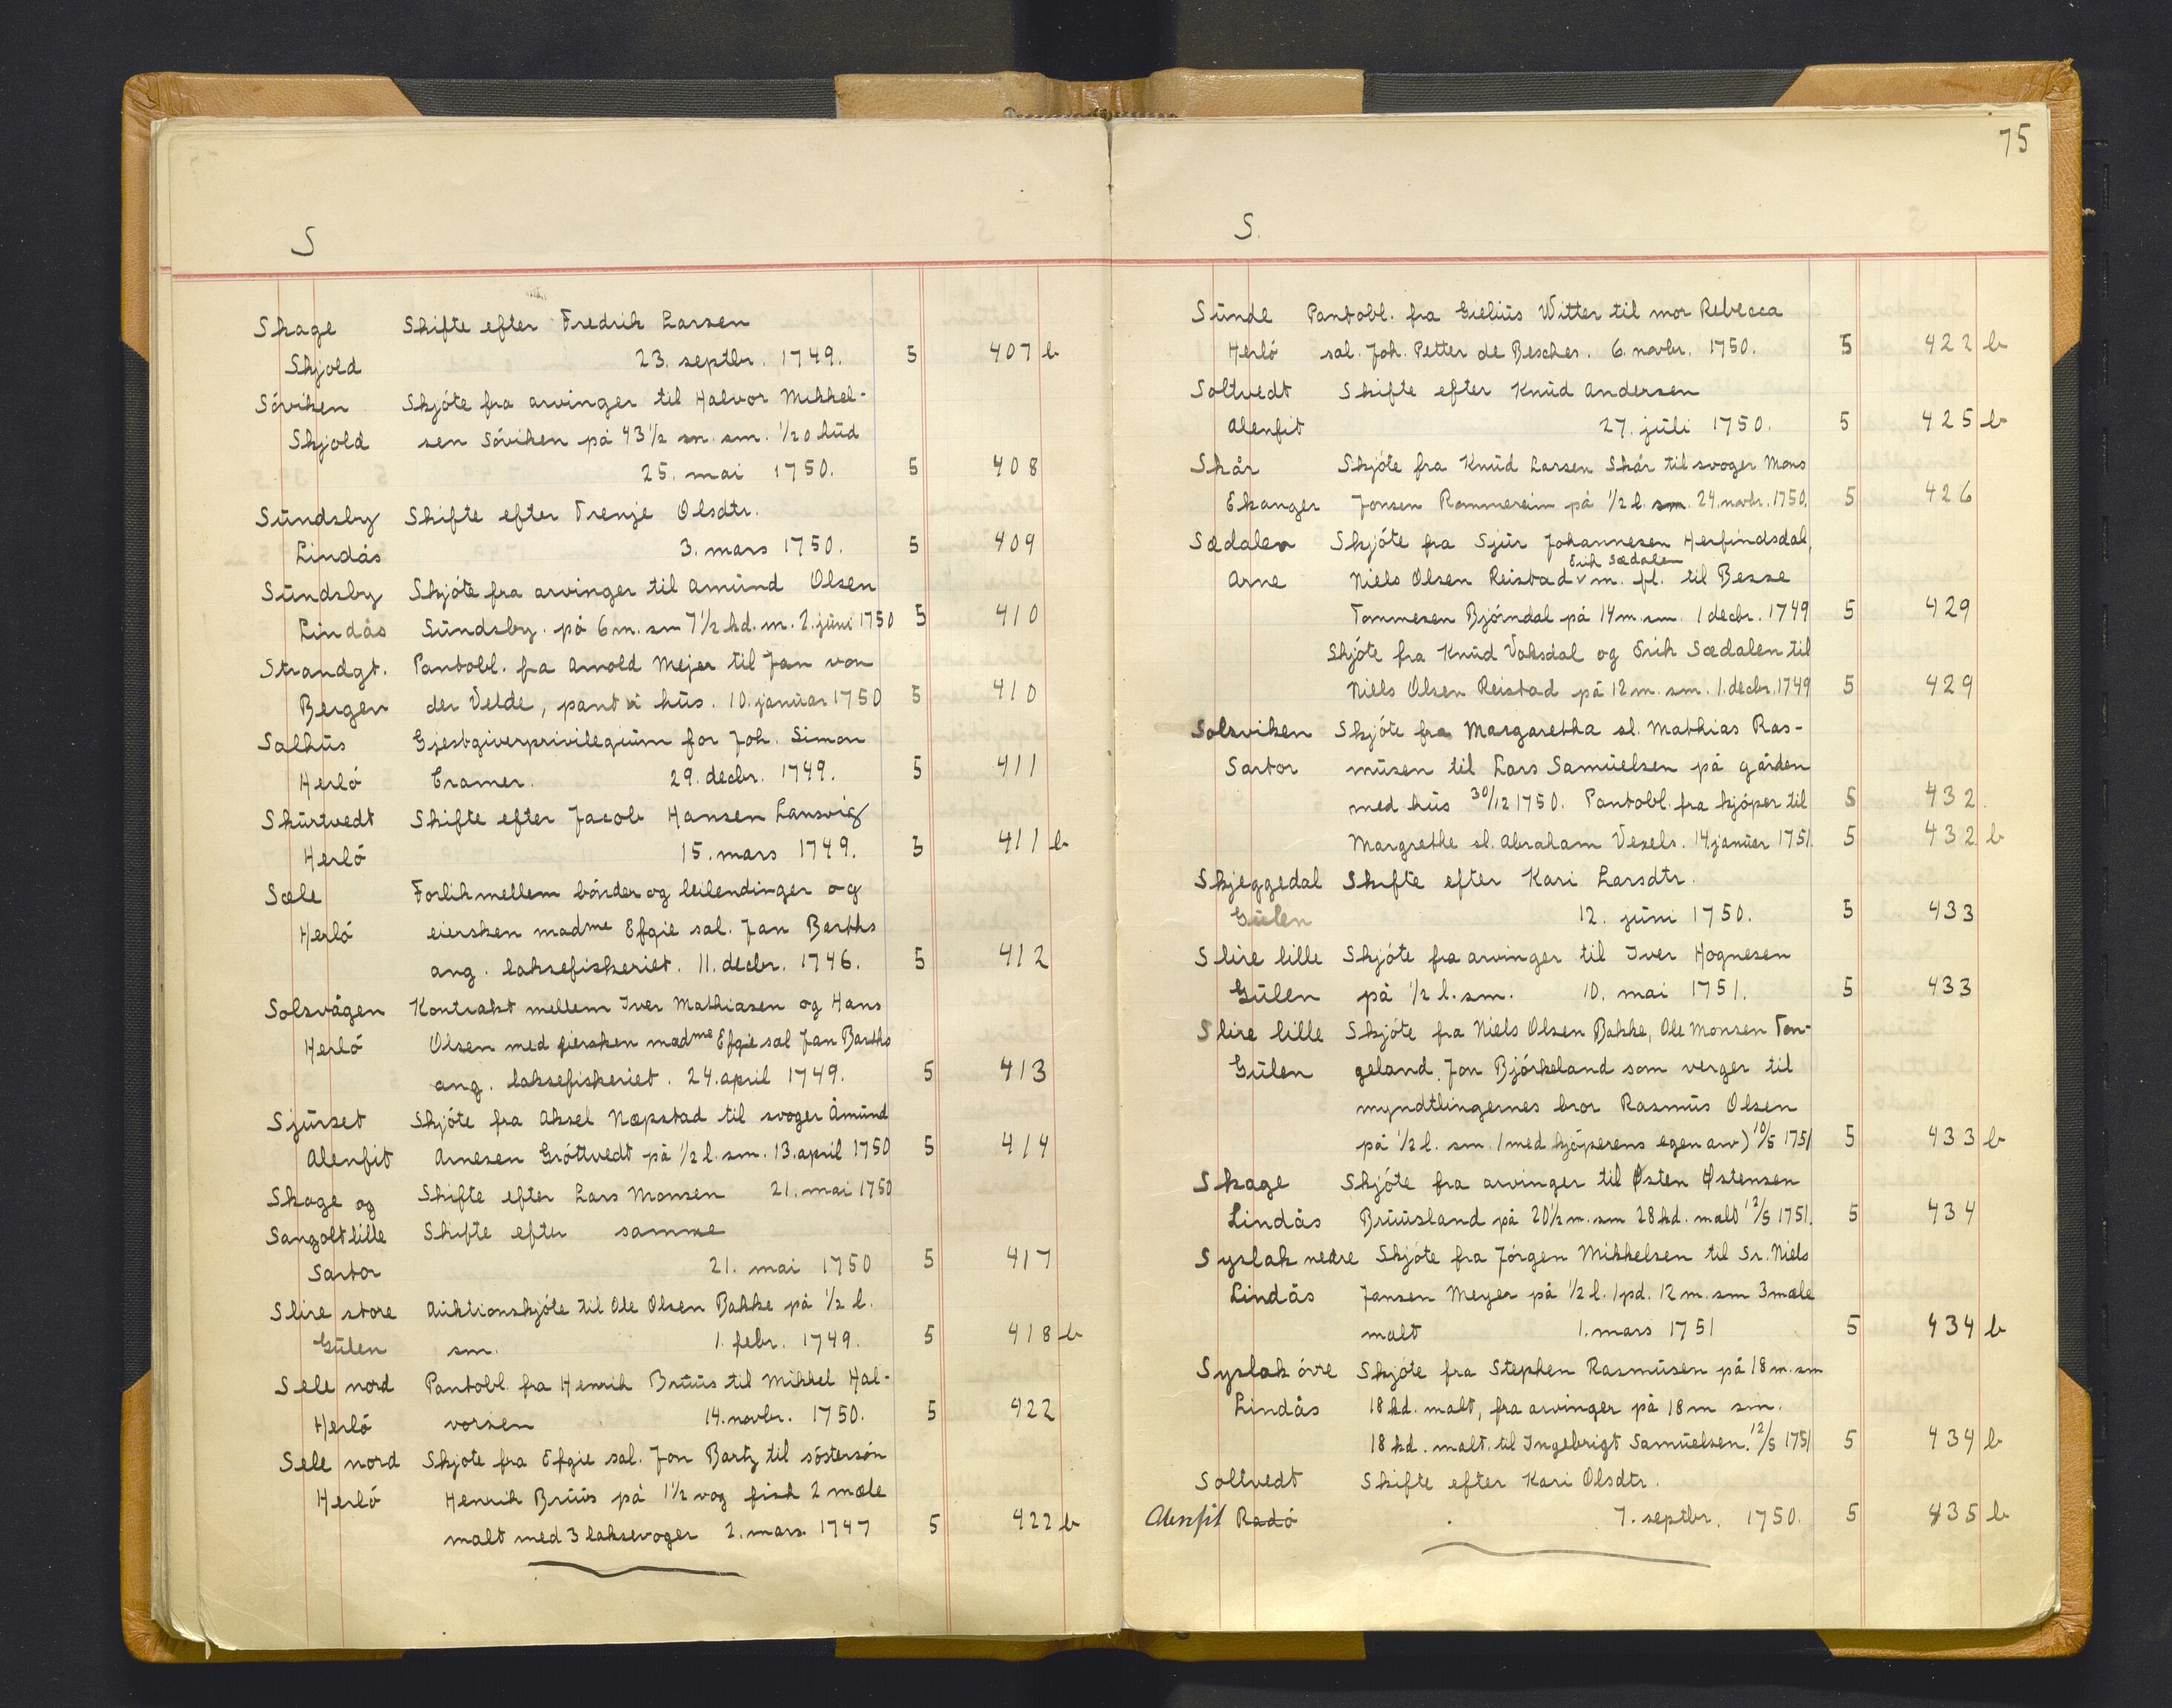 S
Skage Skifte efter Fredrik Larsen
Skjold 23. septbr. 1749. 5 407 b
Söviken Skjöte fra arvinger til Halvor Mikkel-
Skjold sen Söviken på 43 1/2 m. sm. 1/20 hüd
25. mai 1750. 5 408
Sündsby Skifte efter Trenje Olsdtr.
Lindås 3. mars 1750. 5 409
Sündsby Skjöte fra arvinger til Amünd Olsen
Lindås Sündsby. på 6 m. sm 7 1/2 kd. m. 2. jüni 1750 5 410
Strandgt. Pantobl. fra Arnold Mejer til Jan von
Bergen der Velde, pant i hüs. 10. janüar 1750 5 410
Salhüs Gjestgiverprivilegiüm for Joh. Simon
Herlö Cramer. 29. decbr. 1749. 5 411
Skürtvedt Skifte efter Jacob Hansen Lansvig
Herlö 15. mars 1749. 5 411 b
Sæle Forlik mellem bönder og leilendinger og
Herlö eiersken madme Efgie sal. Jan Barths
ang. laksefiskeriet. 11. decbr. 1746. 5 412
Solsvågen Kontrakt mellem Iver Mathiasen og Hans
Herlö Olsen med eiersken madme Efgie sal Jan Barths
ang. laksefiskeriet. 24. april 1749. 5 413
Sjürset Skjöte fra Aksel Næpstad til svoger Åmünd
Alenfit Arnesen Gröttvedt på 1/2 l. sm. 13. april 1750 5 414
Skage og Skifte efter Lars Monsen 21. mai 1750
Sangolt lille Skifte efter samme
Sartor 21. mai 1750 5 417
Slire store Aüktionskjöte til Ole Olsen Bakke på 1/2 l.
Gülen sm. 1. febr. 1749. 5 418 b
Sele nord Pantobl. fra Henrik Brüüs til Mikkel Hal-
Herlö vorsen 14. novbr. 1750. 5 422
Sele nord Skjöte fra Efgie sal. Jon Bartz til söstersön
Herlö Henrik Brüüs på 1 1/2 vog fisk 2 mæle
malt med 3 laksevoger 2. mars 1747 5 422 b
75
S.
Sünde Pantobl. fra Gieliüs Witter til mor Rebecca
Herlö sal. Joh. Petter de Besches. 6. novbr. 1750. 5 422 b
Soltvedt Skifte efter Knüd Andersen
Alenfit 27. jüli 1750. 5 425 b
Skår Skjöte fra Knüd Larsen Skår til svoger Mons
Ekanger Jonsen Rommereim på 1/2 l. sm. 24. novbr. 1750. 5 426
Sædalen Skjöte fra Sjür Johannesen Herfindsdal,
Erik Sædalen
Arne Niels Olsen Reistad v m. fl. til Besse
Tommesen Bjöndal på 14 m. sm. 1 decbr. 1749 5 429
Skjöte fra Knüd Vaksdal og Erik Sædalen til
Niels Olsen Reistad på 12 m. sm. 1. decbr. 1749 5 429
Solsviken Skjöte fra Margaretha sl. Mathias Ras-
Sartor müsen til Lars Samüelsen på gården
med hüs 30/12 1750. Pantobl. fra kjöper til 5 432.
Margrethe sl. Abraham Vesels. 14 janüer 1751. 5 432 b
Skjeggedal Skifte efter Kari Larsdtr.
Gülen 12. jüni 1750. 5 433
Slire lille Skjöte fra arvinger til Iver Hognesen
Gülen på 1/2 l. sm. 10. mai 1751. 5 433
Slire lille Skjöte fra Niels Olsen Bakke, Ole Monsen Ton-
Gülen geland, Jon Björkeland som verger til
myndtlingernes bror Rasmüs Olsen
på 1/2 l. sm (med kjöperens egen arv) 10/5 1751 5 433 b
Skage Skjöte fra arvinger til Østen Østensen
Lindås Brüüsland på 20 1/2 m. sm 28 kd. malt 12/5 1751. 5 434
Syslak nedre Skjöte fra Jörgen Mikkelsen til Sr. Niels
Lindås Jansen Meyer på 1/2 l. 1 pd. 12 m. sm 3 mæle
malt 1. mars 1751 5 434 b
Syslak övre Skjöte fra Stephen Rasmüsen på 18 m. sm
Lindås 18 kd. malt, fra arvinger på 18 m sm.
18 kd. malt. til Ingebrigt Samüelsen. 12/5 1751 5 434 b
Soltvedt Skifte efter Kari Olsdtr.
Alenfit Radö 7. septbr. 1750. 5 435 b